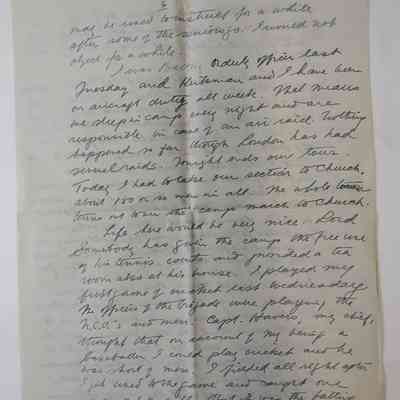 6
may be used to instruct for a while
after some of the seniority. I would not
object for a while.
I was Orderly Officer last
Tuesday and and I have been
on aircraft duty all week. That means
we sleep in camp every night and are
responsible in case of an air raid. Nothing
happened so far though London has had
several raids. Tonight ends our tour.
Today I had to take our section to Church,
about 100 or so men in all. The whole
turns out to see the camp march to Church.
Life here would be very nice. Lord
Somebody has given the camp the free use
of his tennis courts and provided a tea
room also at his house. I played my
first game of cricket last Wednesday.
The officers of the brigade were playing the
N.C.O.'s and men. Capt. my chief,
thought that on account of my being a
baseballer I could play cricket and he
was short of men. I fielded all right after
I got used to the game and caught one